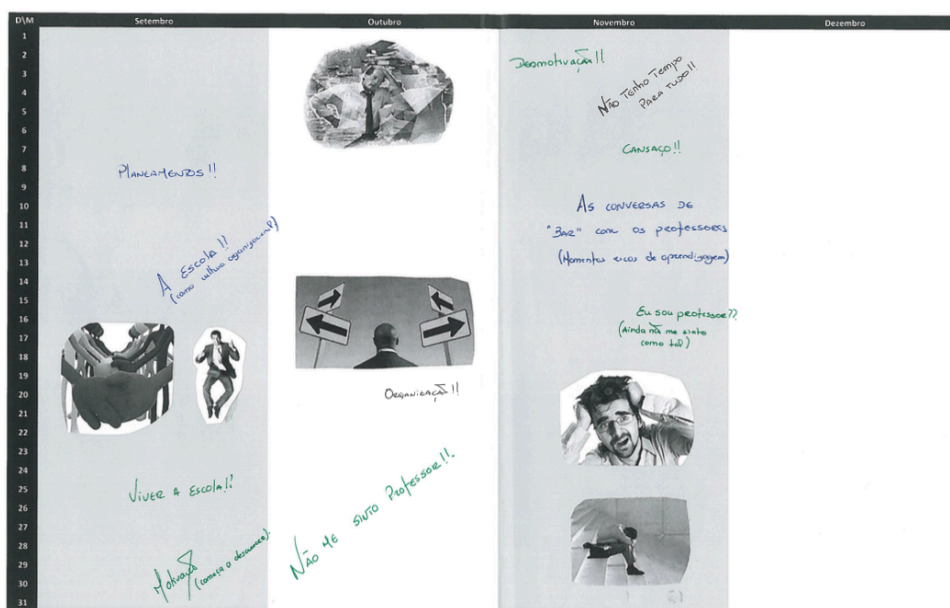 D\M
Setembro
Outubro
Novembro
Dezembro
1
2
3
4
5
6
7
8
9
10
11
12
13
14
15
16
17
18
19
20
21
22
23
24
25
26
27
28
29
30
31
PLANEAMENTOS!!
A ESCOLA!!
(como cultura organizacional)
VIVER A ESCOLA!!
Motivação
(começa a desaparecer).
ORGANIZAÇÃO!!
NÃO ME SINTO PROFESSOR!!.
Desmotivação!!
NÃO TENHO TEMPO
PARA TUDO!!
CANSAÇO!!
AS CONVERSAS DE
"BAR" COM OS PROFESSORES
(Momentos ricos de aprendizagem)
Eu sou professor??
(Ainda não me sinto
como tal)